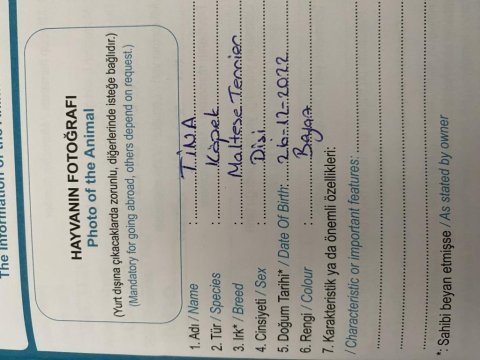 The Information of the
HAYVANIN FOTOĞRAFI
Photo of the Animal
(Yurt dışına çıkacaklarda zorunlu, diğerlerinde isteğe bağlıdır.)
(Mandatory for going abroad, others depend on request.)
1. Adı / Name : TİNA
2. Tür / Species : Köpek
3. Irk* / Breed : Maltese Terrier
4. Cinsiyeti / Sex : Dişi
5. Doğum Tarihi* / Date Of Birth: 26-12-2022
6. Rengi / Colour : Beyaz
7. Karakteristik ya da önemli özellikleri:
/ Characteristic or important features:
*: Sahibi beyan etmişse / As stated by owner